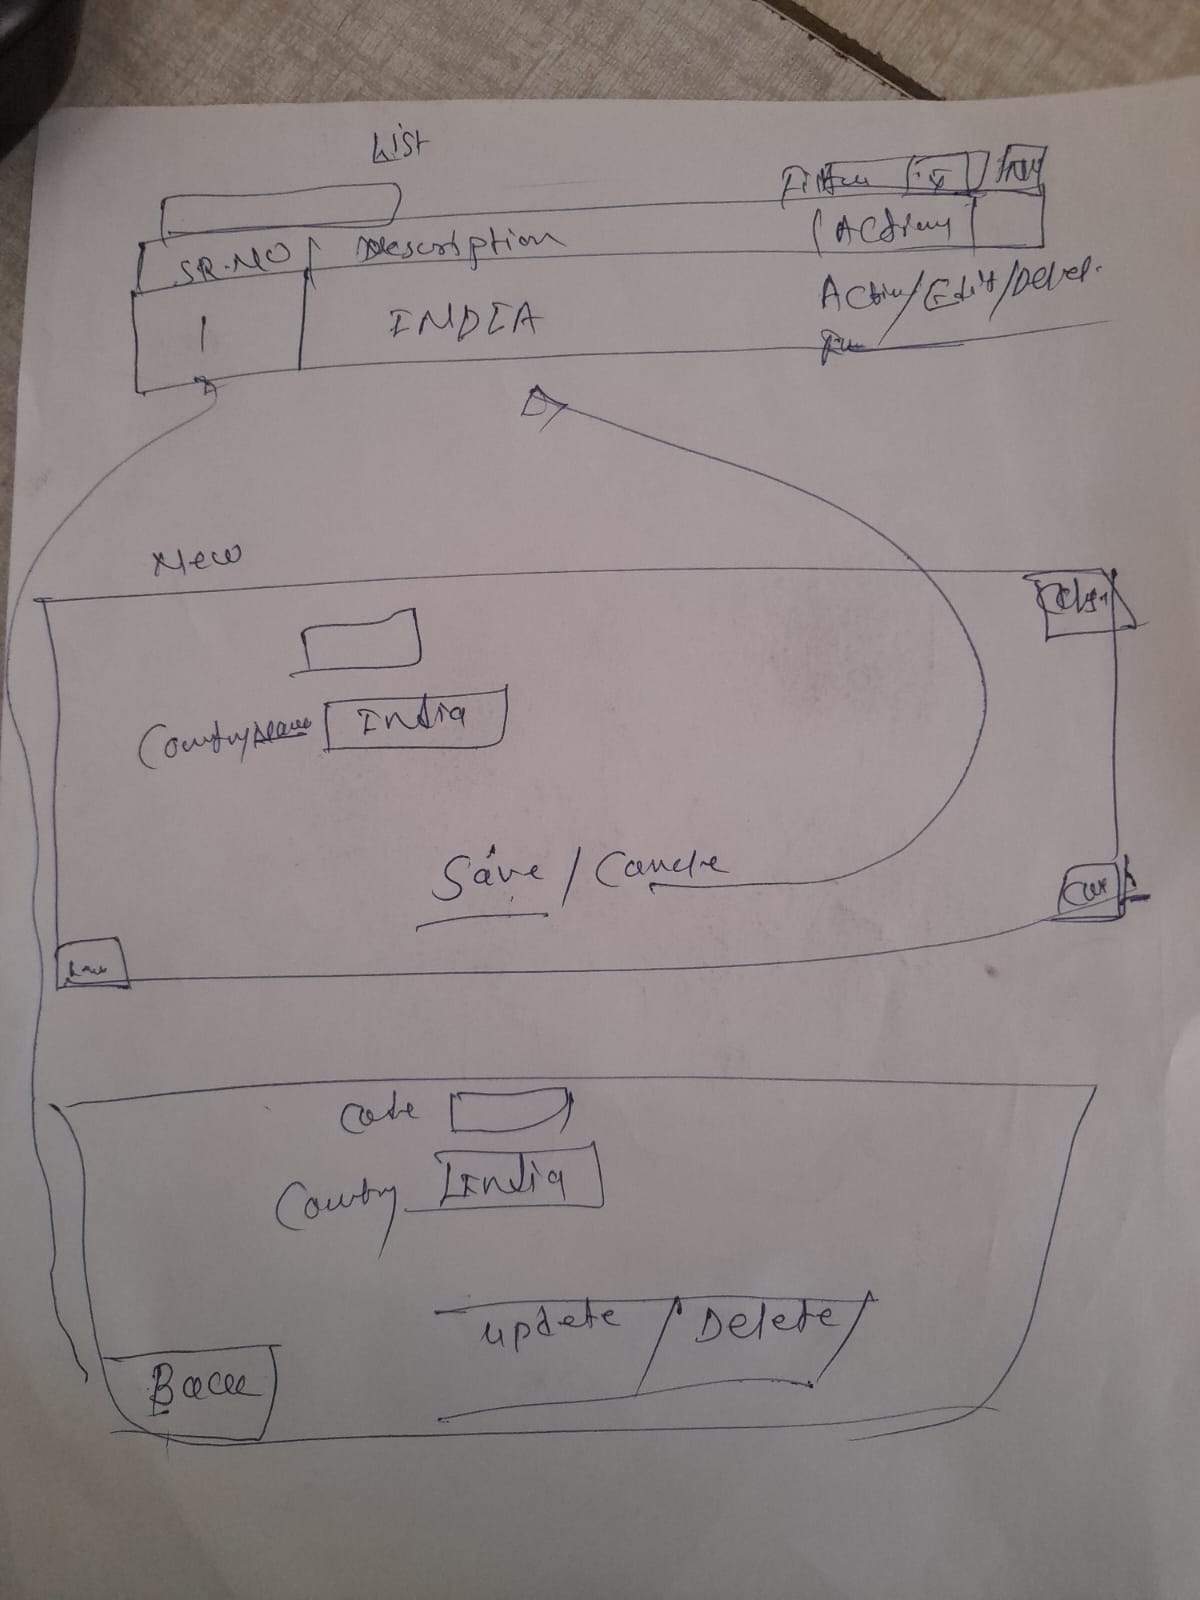 List
SR.NO Description Action
1 INDIA Action/Edit/Delet.
New
Close
Country Name India
Save / Cancle
Code
Country India
update / Delete
Back